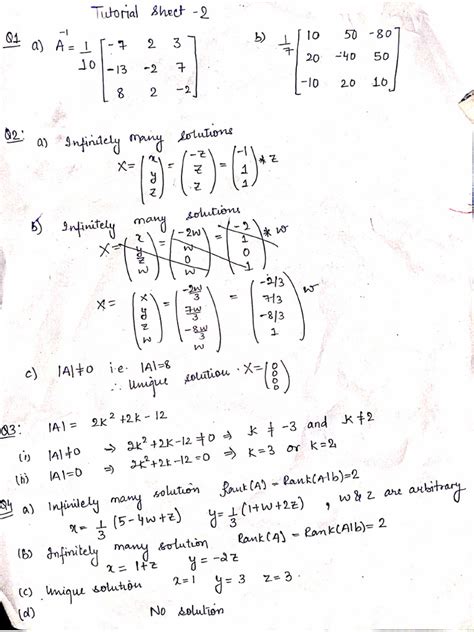 Tutorial Sheet - 2
Q1 a) A⁻¹ = 1/10 [ -7 2 3 ; -13 -2 7 ; 8 2 -2 ] b) 1/7 [ 10 50 -80 ; 20 -40 50 ; -10 20 10 ]
Q2: a) Infinitely many solutions
X = (x y z) = (-z z z) = (-1 1 1) * z
b) Infinitely many solutions
X = (x y z w) = (-2w w 0 w) = (-2 1 0 1) * w
X = (x y z w) = (-2w/3 7w/3 -8w/3 w) = (-2/3 7/3 -8/3 1) w
c) |A| ≠ 0 i.e. |A|=8
∴ Unique solution. X = (0 0 0 0)
Q3: |A| = 2k² + 2k - 12
(i) |A| ≠ 0 ⇒ 2k² + 2k - 12 ≠ 0 ⇒ k ≠ -3 and k ≠ 2
(ii) |A| = 0 ⇒ 2k² + 2k - 12 = 0 ⇒ k = 3 or k = 2.
Q4 a) Infinitely many solution Rank(A) = Rank(A|b) = 2
x = 1/3 (5 - 4w + z) y = 1/3 (1 + w + 2z) , w & z are arbitrary
(B) Infinitely many solution Rank(A) = Rank(A|B) = 2
x = 1 + z y = -2z
(c) Unique solution x = 1 y = 3 z = 3.
(d) No solution